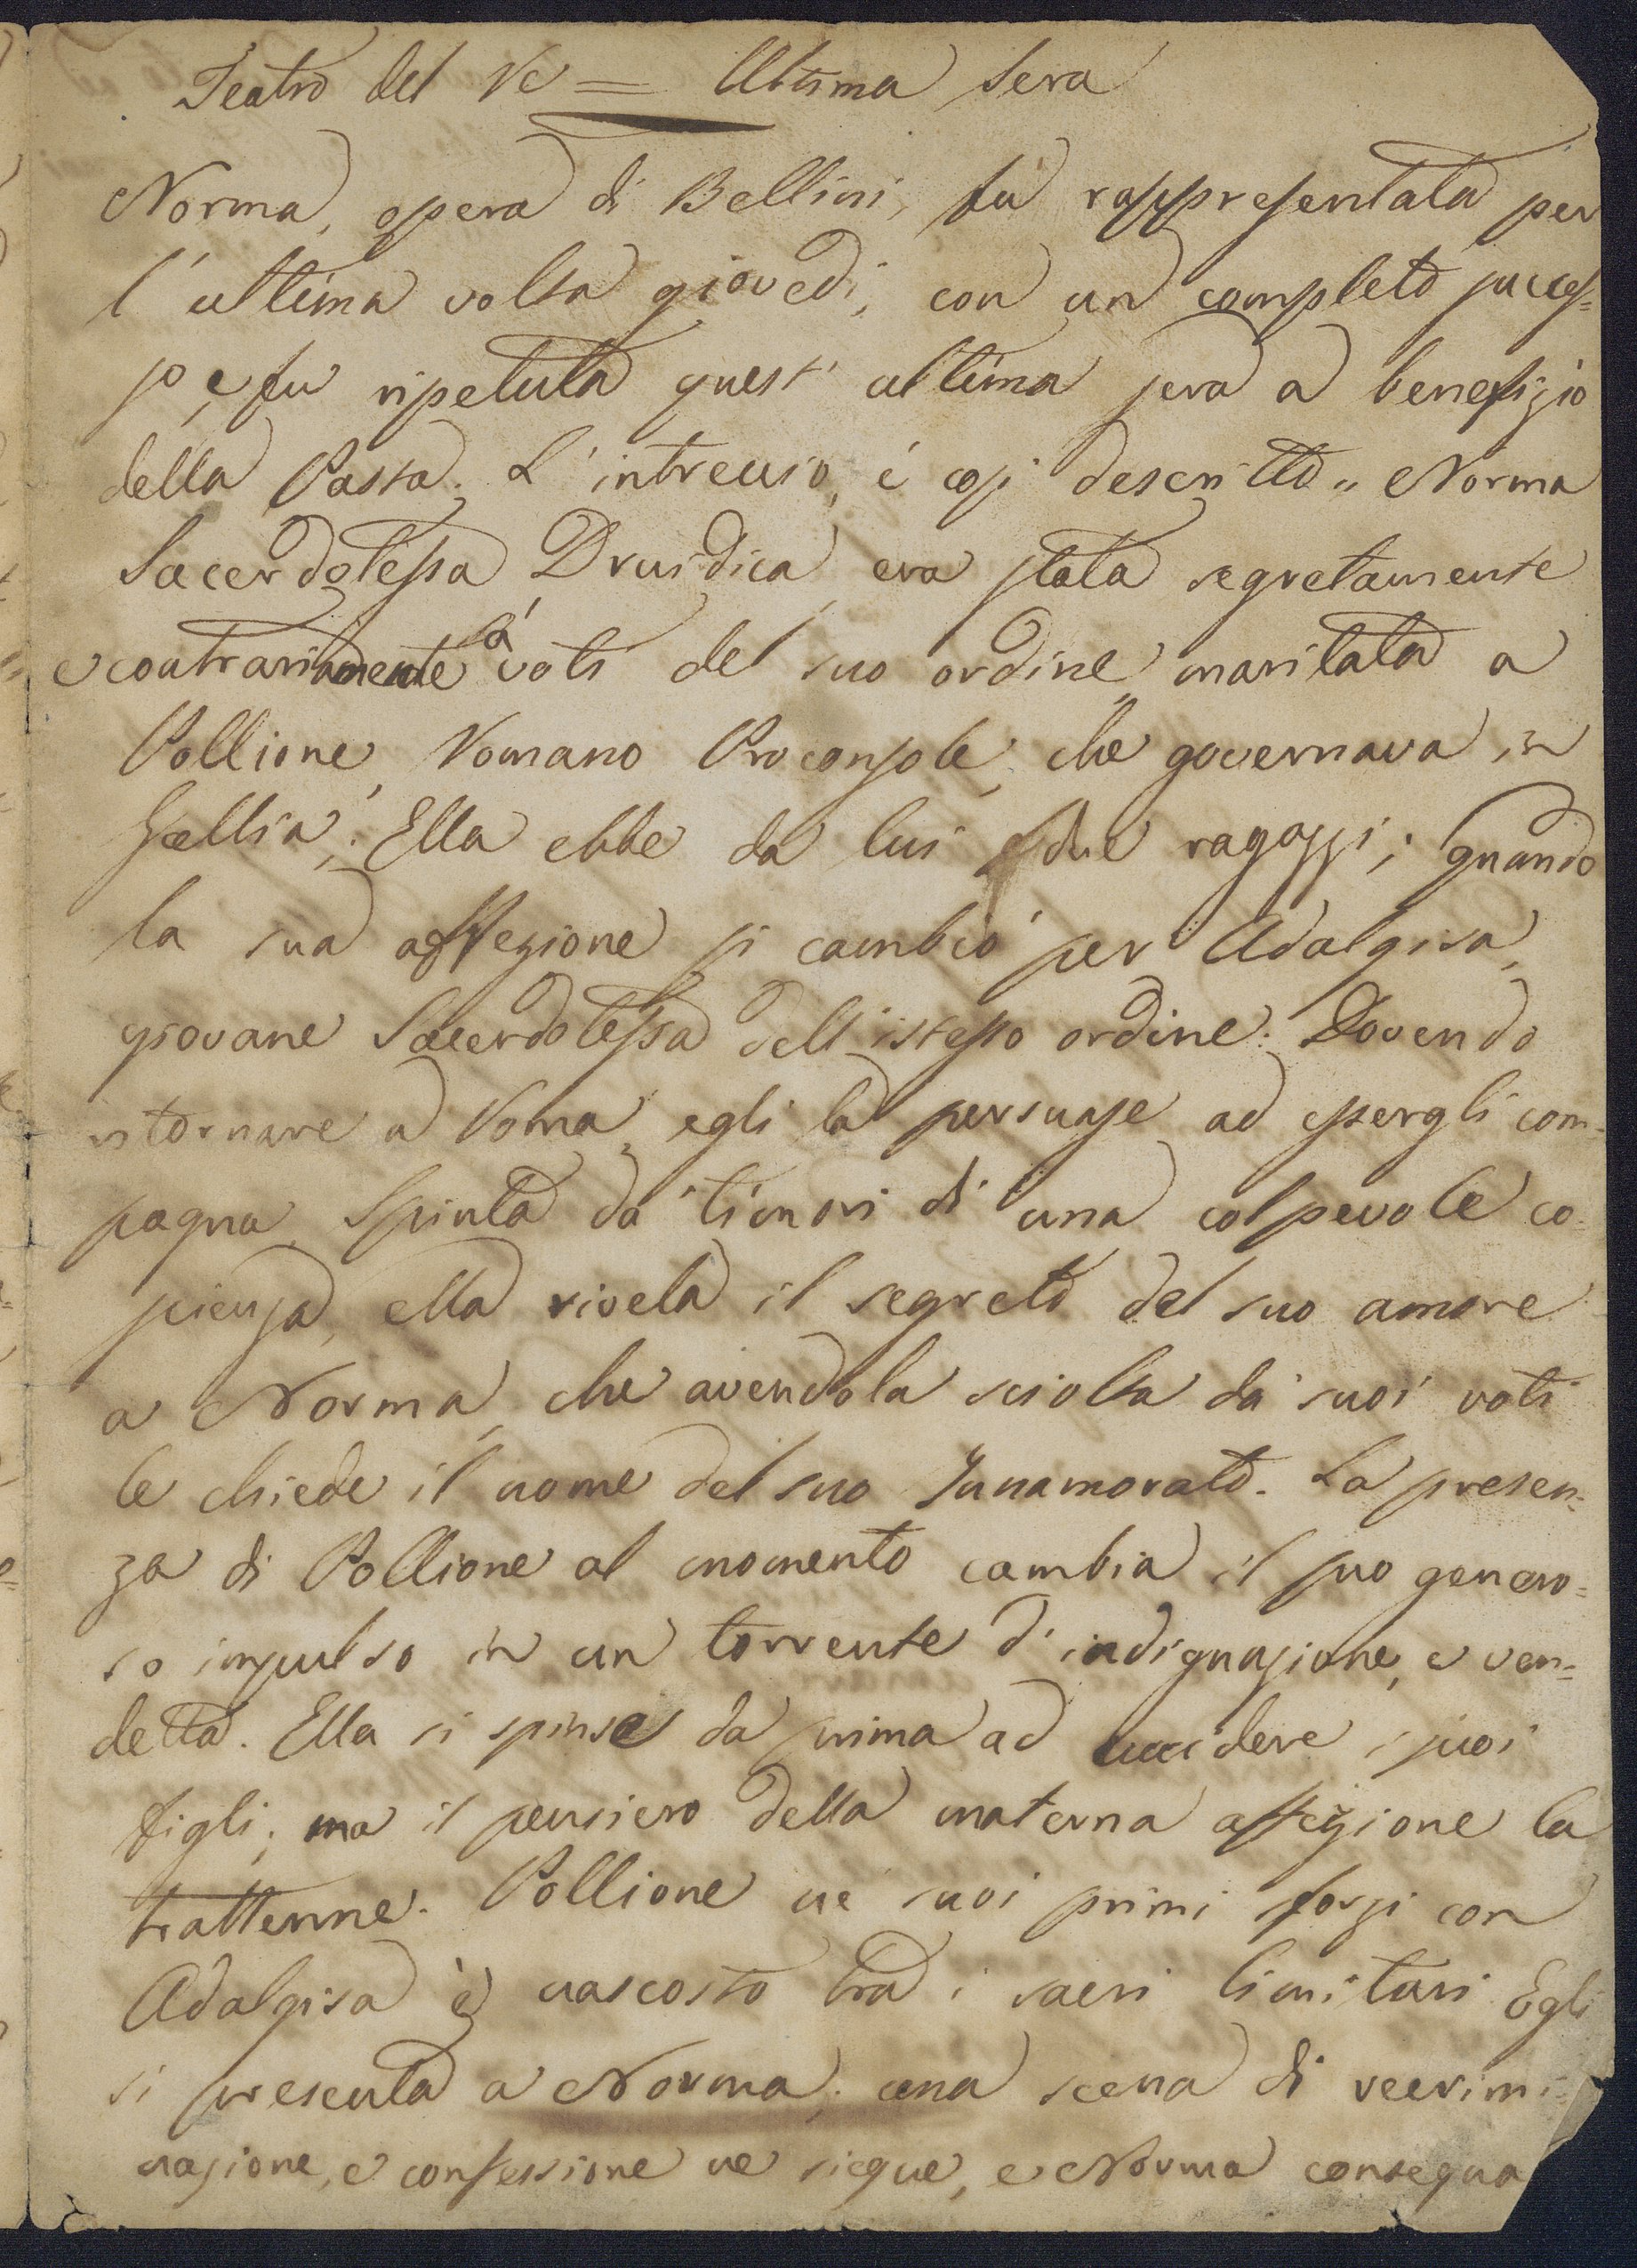 Teatro del Re = Ultima Sera
Norma, opera di Bellini, fù rappresentata per
l'ultima volta giovedì, con un completo succes=
so, e fu ripetuta quest'ultima sera a benefizio
della Pasta. L'intreccio, é così descritto „ Norma
Sacerdotessa Druidica, era stata segretamente
e contrariamente a' voti del suo ordine maritata a
Pollione, Romano Proconsole, che governava in
Gallia; Ella ebbe da lui due ragazzi; quando
la sua affezione si cambió per Adalgisa,
giovane Sacerdotessa dell'istesso ordine. Dovendo
ritornare a Roma, egli la persuase ad essergli com=
pagna. Spinta da' timori di una colpevole co=
scienza, ella rivela il segreto del suo amore
a Norma, che avendola sciolta da' suoi voti
le chiede il nome del suo Innamorato. La presen=
za di Pollione al momento cambia il suo genero=
so impulso in un torrente d'indignazione, e ven=
detta. Ella si spinse da prima ad uccidere i suoi
figli; ma il pensiero della materna affezione la
trattenne. Pollione ne' suoi primi sforzi con
Adalgisa è nascosto tra i sacri limitari Egli
si presenta a Norma; una scena di recrimi=
nazione, e confessione ne siegue, e Norma consegna